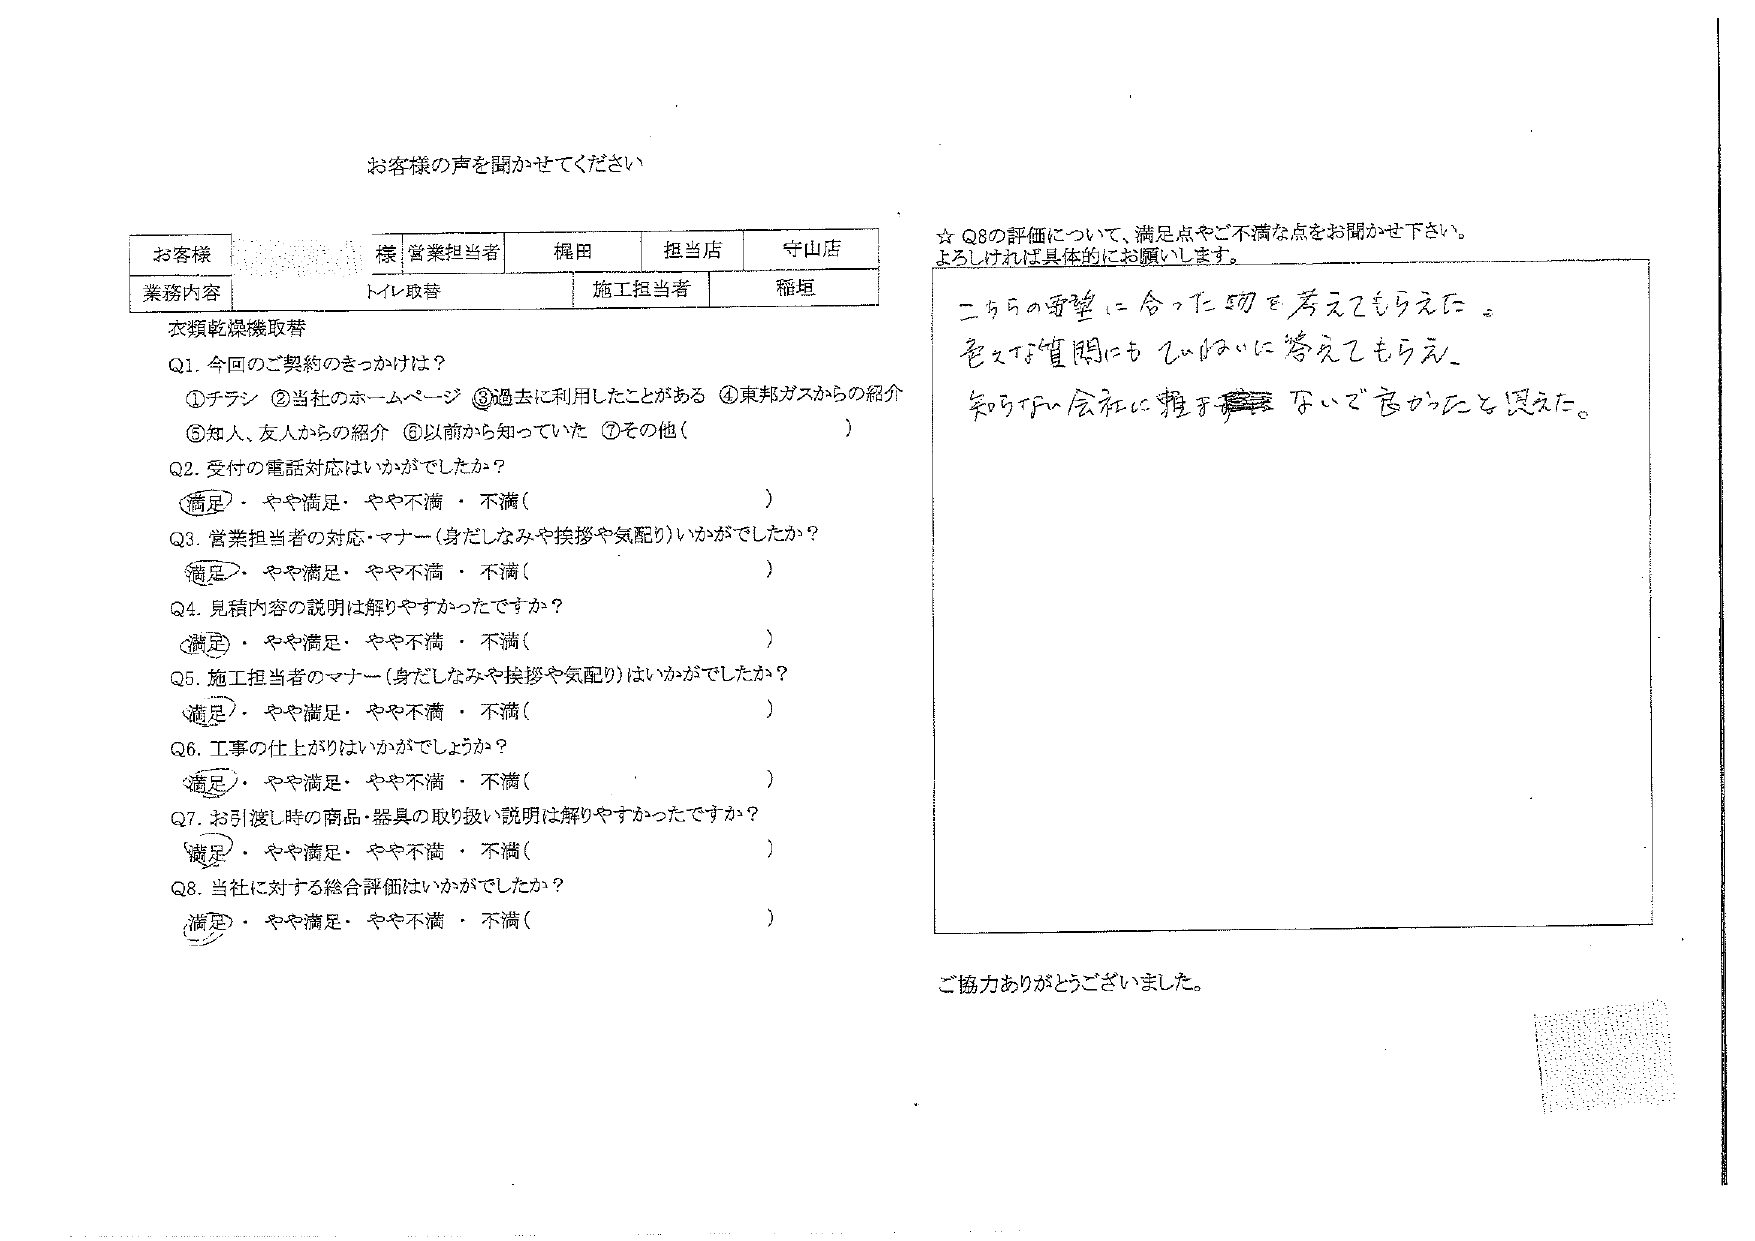 お客様の声を聞かせてください
お客様 様 営業担当者 梶田 担当店 守山店
業務内容 トイレ取替 施工担当者 稲垣
衣類乾燥機取替
Q1. 今回のご契約のきっかけは？
①チラシ ②当社のホームページ ③過去に利用したことがある ④東邦ガスからの紹介
⑤知人、友人からの紹介 ⑥以前から知っていた ⑦その他( )
Q2. 受付の電話対応はいかがでしたか？
満足・ やや満足・ やや不満 ・ 不満( )
Q3. 営業担当者の対応・マナー(身だしなみや挨拶や気配り)いかがでしたか？
満足・ やや満足・ やや不満 ・ 不満( )
Q4. 見積内容の説明は解りやすかったですか？
満足・ やや満足・ やや不満 ・ 不満( )
Q5. 施工担当者のマナー(身だしなみや挨拶や気配り)はいかがでしたか？
満足・ やや満足・ やや不満 ・ 不満( )
Q6. 工事の仕上がりはいかがでしょうか？
満足・ やや満足・ やや不満 ・ 不満( )
Q7. お引渡し時の商品・器具の取り扱い説明は解りやすかったですか？
満足・ やや満足・ やや不満 ・ 不満( )
Q8. 当社に対する総合評価はいかがでしたか？
満足・ やや満足・ やや不満 ・ 不満( )
☆ Q8の評価について、満足点やご不満な点をお聞かせ下さい。
よろしければ具体的にお願いします。
こちらの要望に合った物を考えてもらえた。
色々な質問にもていねいに答えてもらえ、
知らない会社に ないで良かったと思えた。
ご協力ありがとうございました。